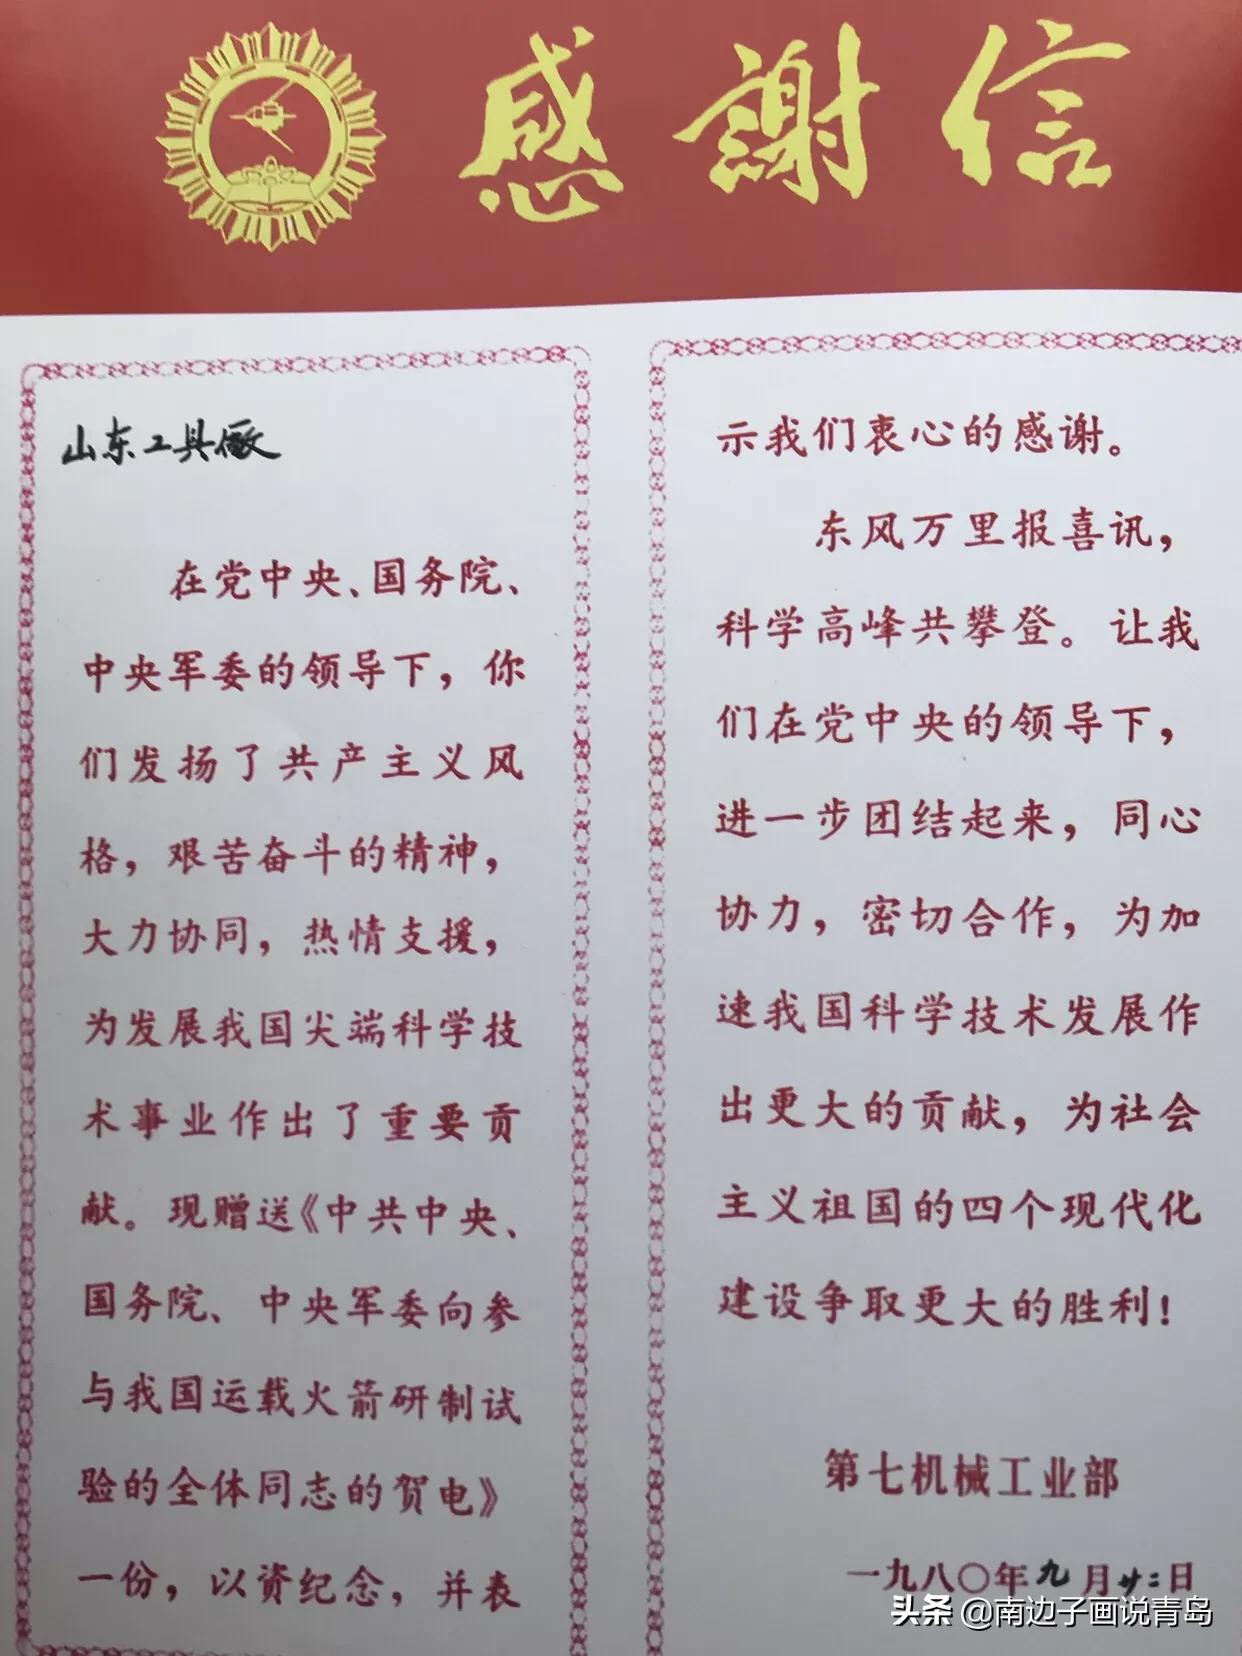 感謝信
山东工具廠
在党中央、国务院、
中央军委的领导下，你
们发扬了共产主义风
格，艰苦奋斗的精神，
大力协同，热情支援，
为发展我国尖端科学技
术事业作出了重要贡
献。现赠送《中共中央、
国务院、中央军委向参
与我国运载火箭研制试
验的全体同志的贺电》
一份，以资纪念，并表
示我们衷心的感谢。
东风万里报喜讯，
科学高峰共攀登。让我
们在党中央的领导下，
进一步团结起来，同心
协力，密切合作，为加
速我国科学技术发展作
出更大的贡献，为社会
主义祖国的四个现代化
建设争取更大的胜利！
第七机械工业部
一九八〇年九月廿二日
头条 @南边子画说青岛